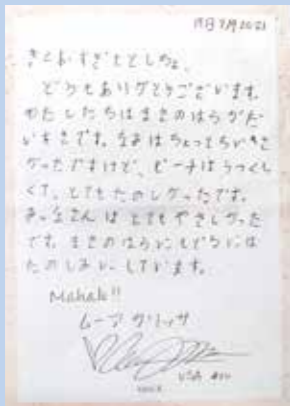 19日 7月 2021
どうもありがとうございます。
わたしたちはまきのはらがだ
いすきです。なみはちょっとちいさ
かったですけど、ビーチはうつくし
くて、とてもたのしかったです。
みなさんはとてもやさしかった
です。まきのはらにもどるには
たのしみにしています。
Mahalo!!
ムーア カリッサ
USA